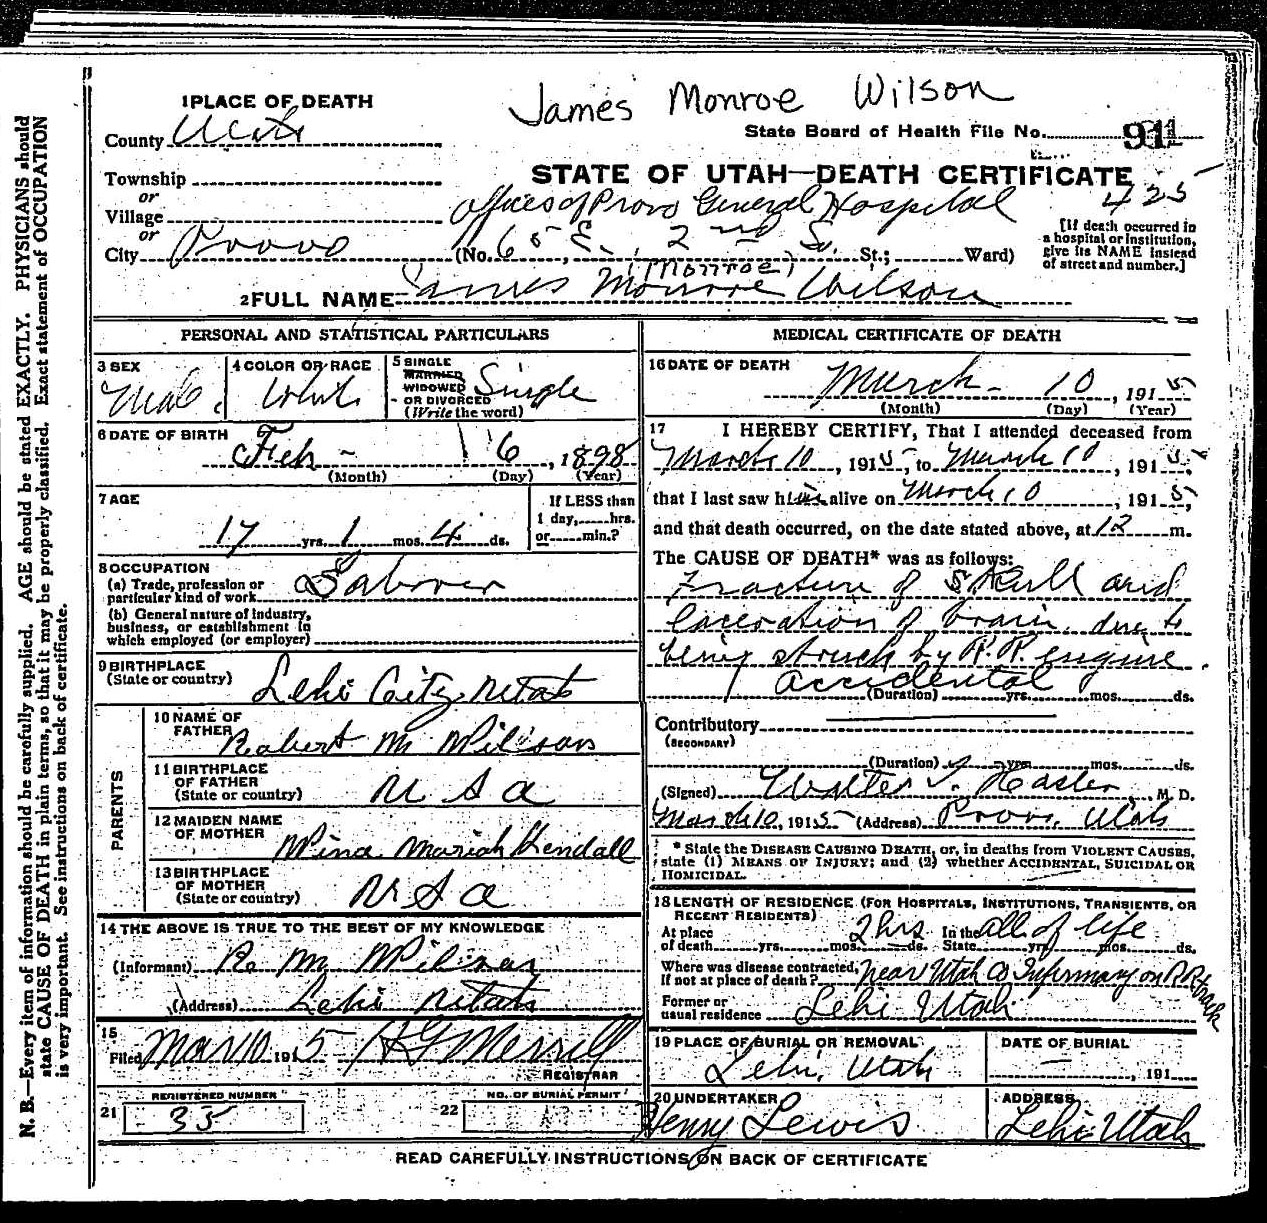 James Monroe Wilson
1 PLACE OF DEATH
County Utah
State Board of Health File No. 911
Township
or
Village
or
City Provo
STATE OF UTAH—DEATH CERTIFICATE
425
offices of Provo General Hospital
(No. 65 E., 2nd So. St.; Ward)
[If death occurred in
a hospital or institution,
give its NAME instead
of street and number.]
(Monroe)
2 FULL NAME James Monroe Wilson
PERSONAL AND STATISTICAL PARTICULARS
3 SEX
Male.
4 COLOR OR RACE
White
5 SINGLE
MARRIED
WIDOWED
OR DIVORCED
(Write the word)
Single
6 DATE OF BIRTH
Feb - 6, 1898
(Month) (Day) (Year)
7 AGE
17 yrs. 1 mos. 4 ds.
If LESS than
1 day, hrs.
or min.?
8 OCCUPATION
(a) Trade, profession or
particular kind of work Laborer
(b) General nature of industry,
business, or establishment in
which employed (or employer)
9 BIRTHPLACE
(State or country) Lehi City Utah
PARENTS
10 NAME OF
FATHER Robert M Wilson
11 BIRTHPLACE
OF FATHER
(State or country) U S A
12 MAIDEN NAME
OF MOTHER
Mina Mariah Kendall
13 BIRTHPLACE
OF MOTHER
(State or country) U S A
14 THE ABOVE IS TRUE TO THE BEST OF MY KNOWLEDGE
(Informant) R M Wilson
(Address) Lehi Utah
15
Filed Mar 10 1915 H G Merrill
REGISTRAR
21 REGISTERED NUMBER
35
22 NO. OF BURIAL PERMIT
MEDICAL CERTIFICATE OF DEATH
16 DATE OF DEATH
March - 10, 1915
(Month) (Day) (Year)
17 I HEREBY CERTIFY, That I attended deceased from
March 10, 1915, to March 10, 1915,
that I last saw him alive on March 10, 1915,
and that death occurred, on the date stated above, at 12 m.
The CAUSE OF DEATH* was as follows:
Fracture of Skull and
laceration of brain due to
being struck by R. R. engine.
accidental
(Duration) yrs. mos. ds.
Contributory
(SECONDARY)
(Duration) yrs. mos. ds.
(Signed) Walter T. Hasler, M. D.
March 10, 1915 (Address) Provo, Utah
* State the DISEASE CAUSING DEATH, or, in deaths from VIOLENT CAUSES,
state (1) MEANS OF INJURY; and (2) whether ACCIDENTAL, SUICIDAL OR
HOMICIDAL.
18 LENGTH OF RESIDENCE (FOR HOSPITALS, INSTITUTIONS, TRANSIENTS, OR
RECENT RESIDENTS)
At place
of death yrs. mos. 2 hrs ds. In the State all of life yrs. mos. ds.
Where was disease contracted,
If not at place of death? Near Utah Co Infirmary on R R track
Former or
usual residence Lehi Utah.
19 PLACE OF BURIAL OR REMOVAL
Lehi, Utah
DATE OF BURIAL
, 191
20 UNDERTAKER
Henry Lewis
ADDRESS
Lehi Utah
READ CAREFULLY INSTRUCTIONS ON BACK OF CERTIFICATE
N. B.—Every item of information should be carefully supplied. AGE should be stated EXACTLY. PHYSICIANS should
state CAUSE OF DEATH in plain terms, so that it may be properly classified. Exact statement of OCCUPATION
is very important. See instructions on back of certificate.